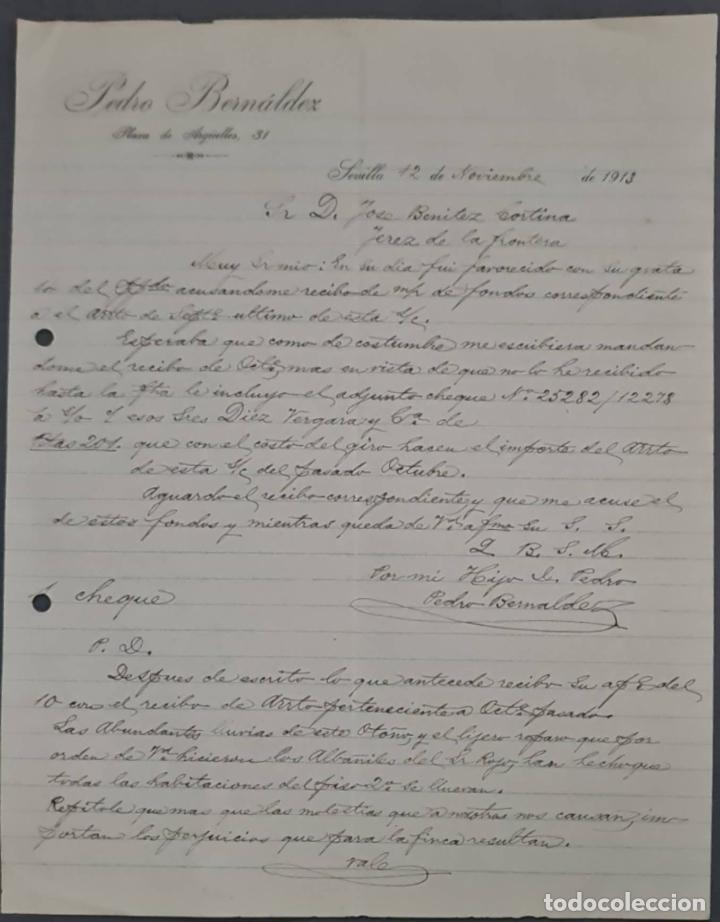 Pedro Bernáldez
Plaza de Argüelles, 31
Sevilla 12 de Noviembre de 1913
Sr D. Jose Benitez Cortina
Jerez de la frontera
Muy Sr mio: En su dia fui favorecido con su grata
del acusandome recibo de m/r de fondos correspondiente
a el Arrto de Septe ultimo de esta c/c.
Esperaba que como de costumbre me escribiera mandan-
dome el recibo de Octe, mas en vista de que no lo he recibido
hasta la fha le incluyo el adjunto cheque No 25282/12278
a c/o esos Sres Diez Vergara y Ca. de
Ptas 201. que con el costo del giro hacen el importe del Arrto
de esta c/c del pasado Octubre.
Aguardo el recibo correspondiente y que me acuse el
de estos fondos y mientras queda de Vd. afmo su S. S.
Q. B. S. M.
Por mi Hijo D. Pedro
Pedro Bernaldez
1 cheque
P. D.
Despues de escrito lo que antecede recibo su apde del
10 con el recibo de Arrto perteneciente a Octe pasado.
Las Abundantes lluvias de este Otoño, y el lijero reparo que por
orden de Vd. hicieron los Albañiles del Sr Rojo, han hecho que
todas las habitaciones del piso 2o. se lluevan.
Repitole que mas que las molestias que a nosotros nos causan, im-
portan los perjuicios que para la finca resultan.
vale
todocoleccion.net